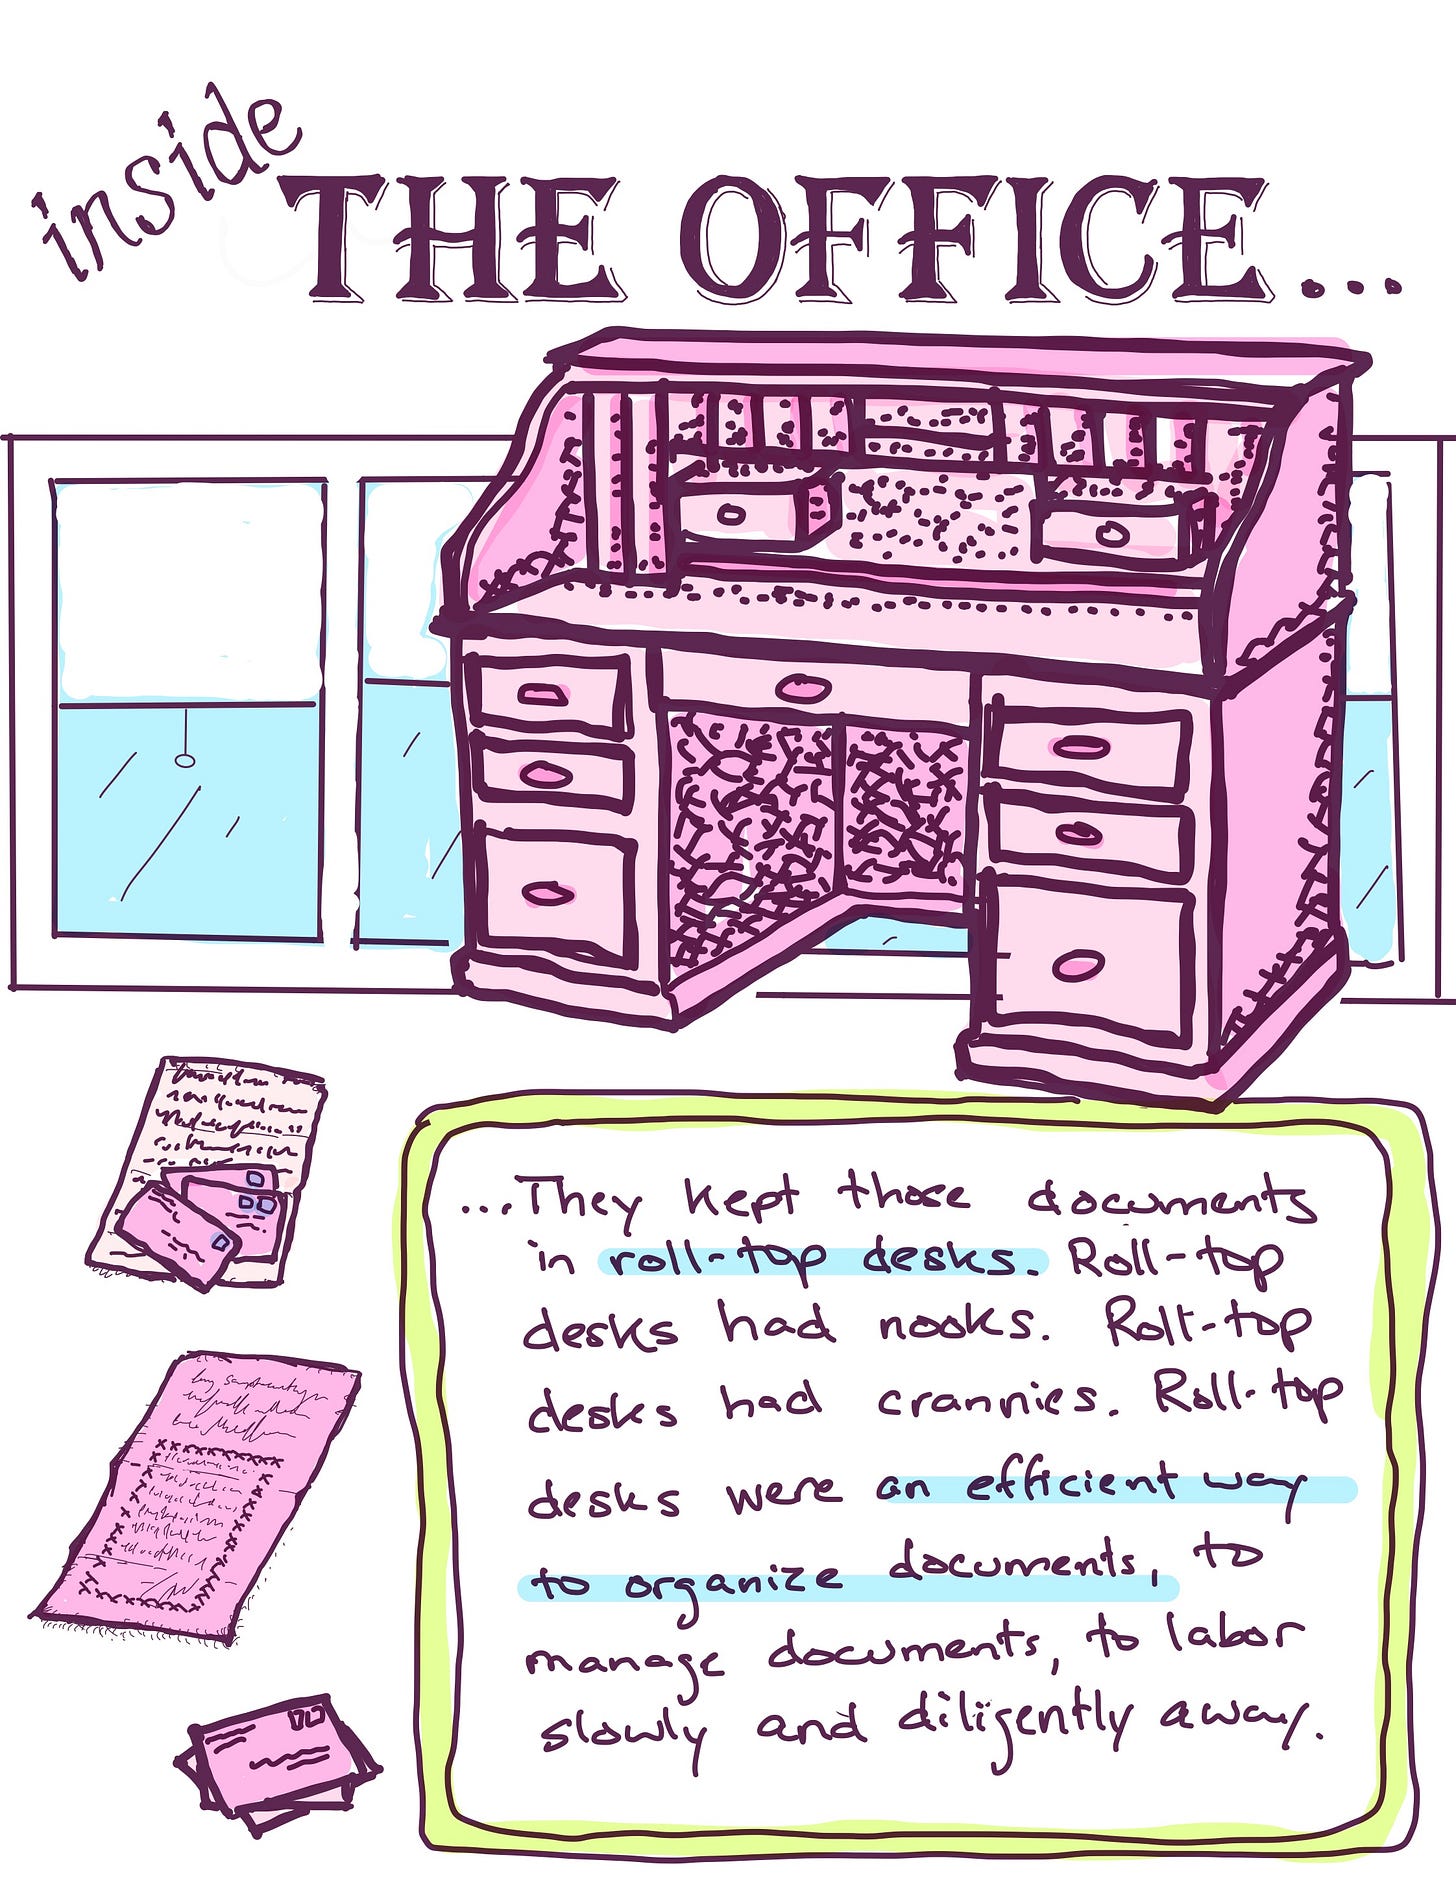 inside
THE OFFICE...
...They kept those documents
in roll-top desks. Roll-top
desks had nooks. Roll-top
desks had crannies. Roll-top
desks were an efficient way
to organize documents, to
manage documents, to labor
slowly and diligently away.